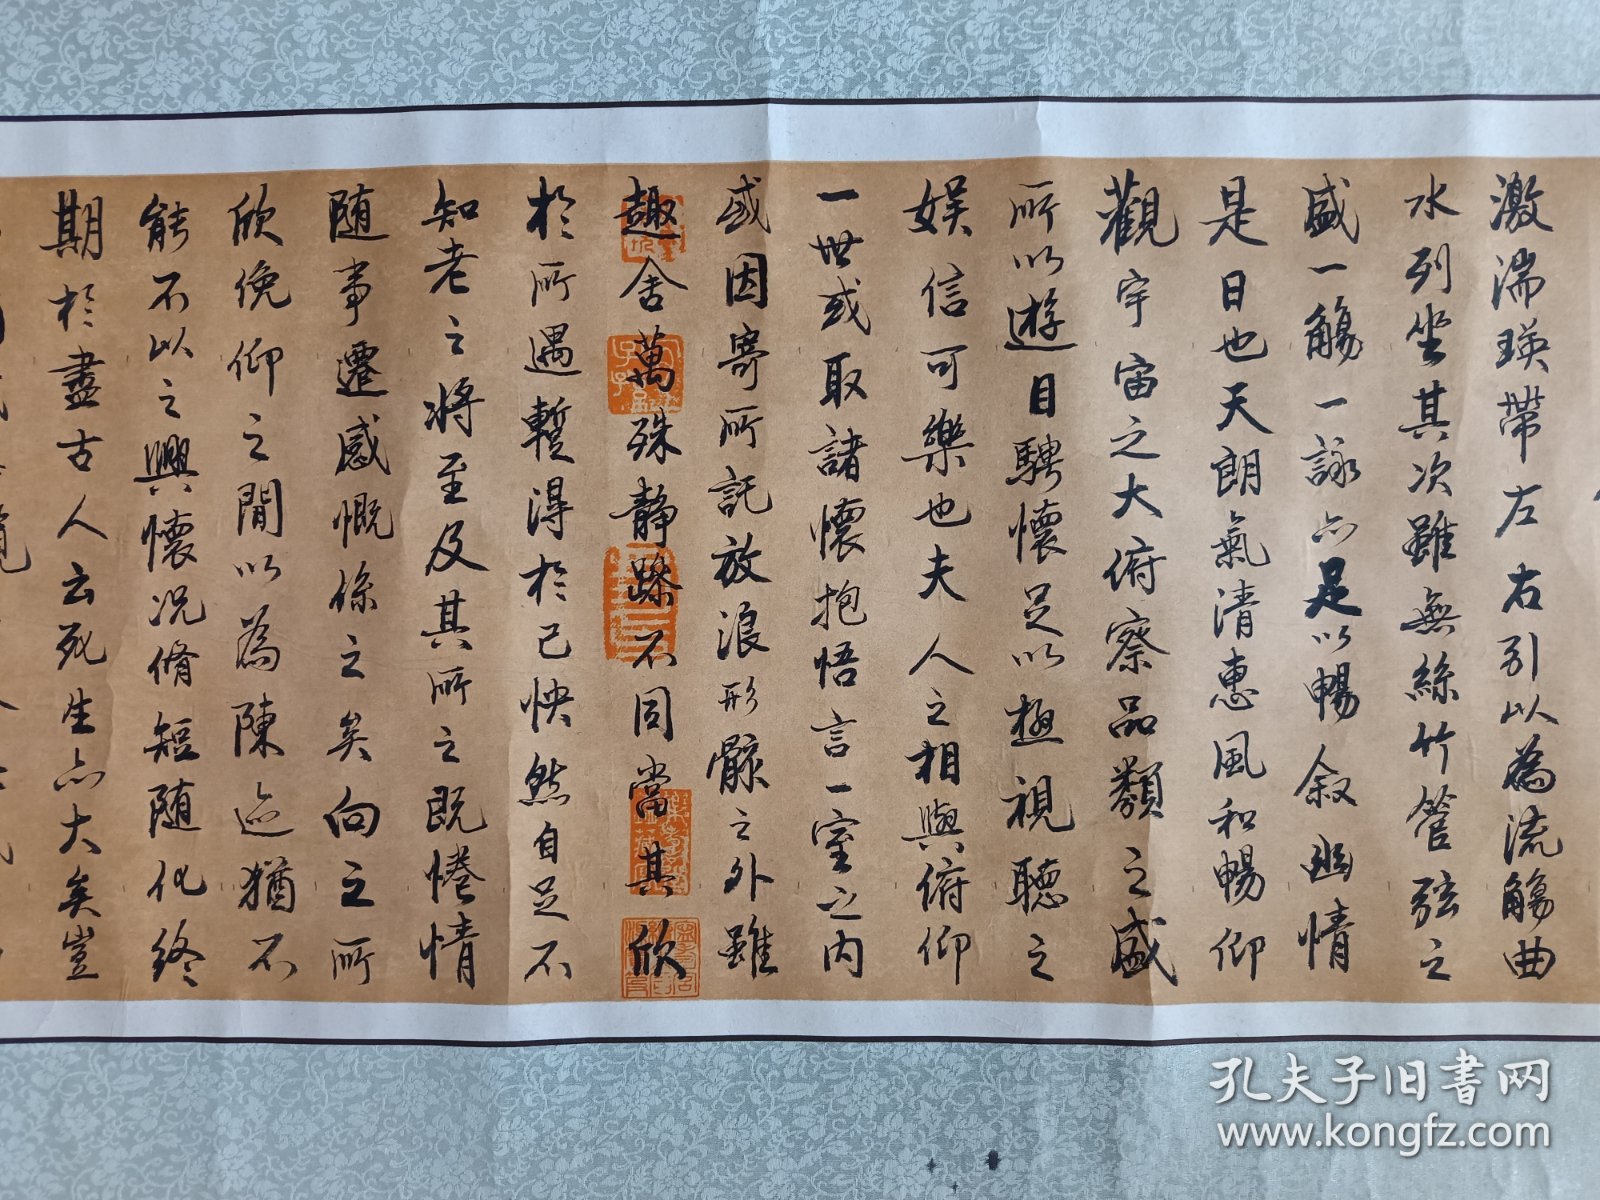 激湍暎帶左右引以為流觴曲
水列坐其次雖無絲竹管弦之
盛一觴一詠亦足以暢叙幽情
是日也天朗氣清惠風和暢仰
觀宇宙之大俯察品類之盛
所以遊目騁懷足以極視聽之
娱信可樂也夫人之相與俯仰
一世或取諸懷抱悟言一室之内
或因寄所託放浪形骸之外雖
趣舍萬殊静躁不同當其欣
於所遇暫得於己怏然自足不
知老之將至及其所之既惓情
随事遷感慨係之矣向之所
欣俛仰之間以為陳迹猶不
能不以之興懷況脩短随化終
期於盡古人云死生亦大矣豈
孔夫子旧書网
www.kongfz.com